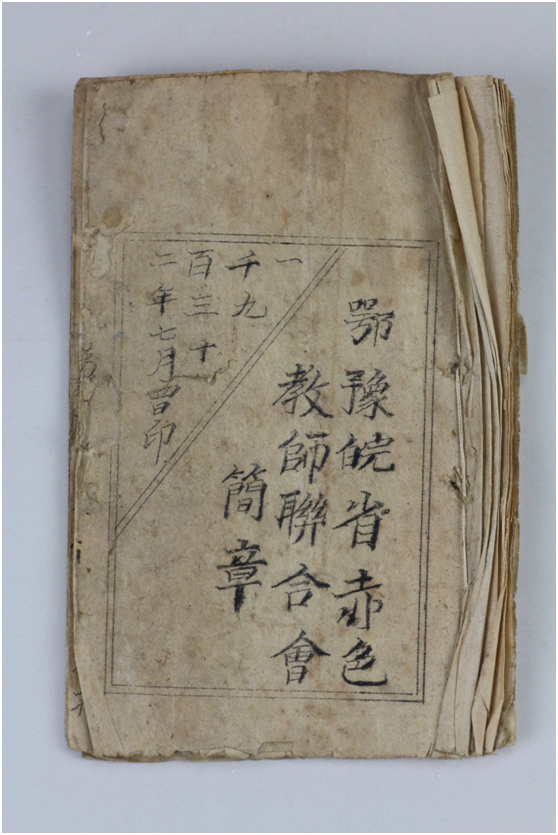 鄂豫皖省赤色
教師聯合會
簡章
一
千九
百三十
二年七月印